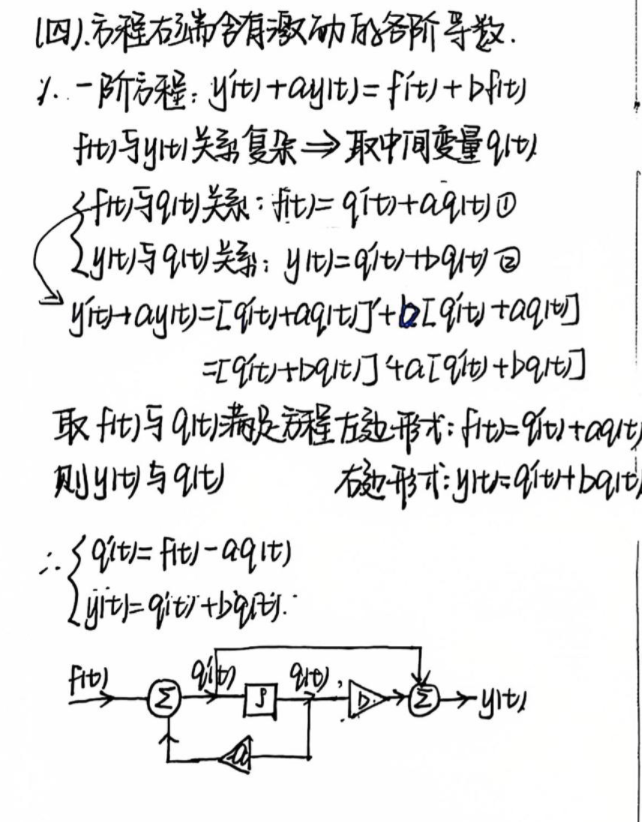 (四).方程右端含有激励的各阶导数.
1. 一阶方程: y'(t)+ay(t)=f'(t)+bf(t)
f(t)与y(t)关系复杂⇒取中间变量q(t)
f(t)与q(t)关系: f(t)=q'(t)+aq(t)①
y(t)与q(t)关系: y(t)=q'(t)+bq(t)②
y'(t)+ay(t)=[q'(t)+aq(t)]'+b[q'(t)+aq(t)]
=[q'(t)+bq(t)]'+a[q'(t)+bq(t)]
取f(t)与q(t)满足方程左边形式: f(t)=q'(t)+aq(t)
则y(t)与q(t) 右边形式: y(t)=q'(t)+bq(t)
∴ q'(t)=f(t)-aq(t)
y(t)=q'(t)+bq(t).
f(t) Σ q'(t) ∫ q(t) b Σ y(t)
-a